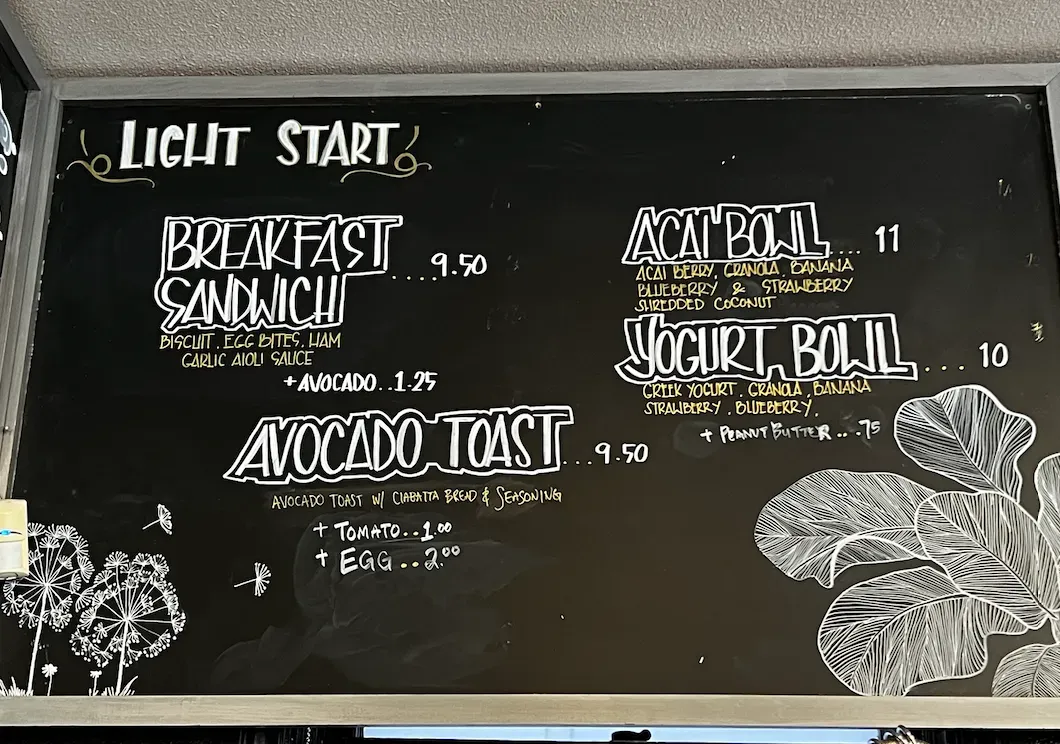 LIGHT START
BREAKFAST
SANDWICH ....9.50
BISCUIT. EGG BITES. HAM
GARLIC AIOLI SAUCE
+AVOCADO..1.25
AVOCADO TOAST...9.50
AVOCADO TOAST W/ CIABATTA BREAD & SEASONING
+ TOMATO..1.00
+ EGG..2.00
ACAI BOWL.... 11
ACAI BERRY, GRANOLA, BANANA
BLUEBERRY & STRAWBERRY
SHREDDED COCONUT
YOGURT BOWL.... 10
GREEK YOGURT. GRANOLA, BANANA
STRAWBERRY. BLUEBERRY.
+ PEANUT BUTTER...75